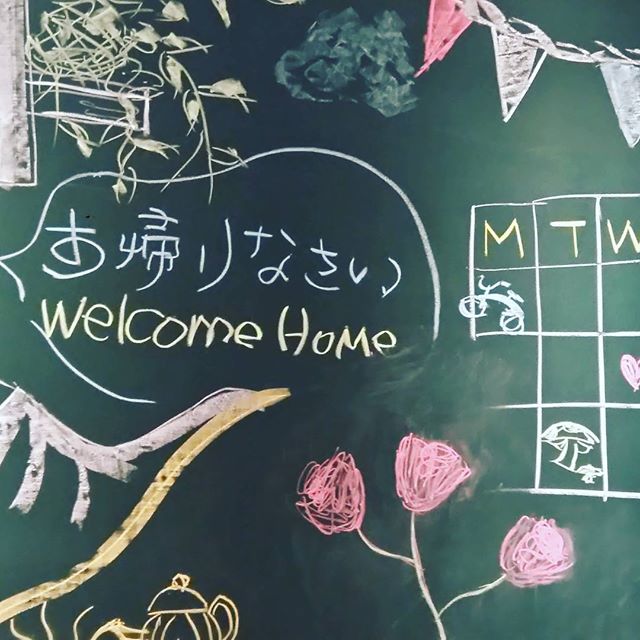 お帰りなさい
Welcome Home
M T W